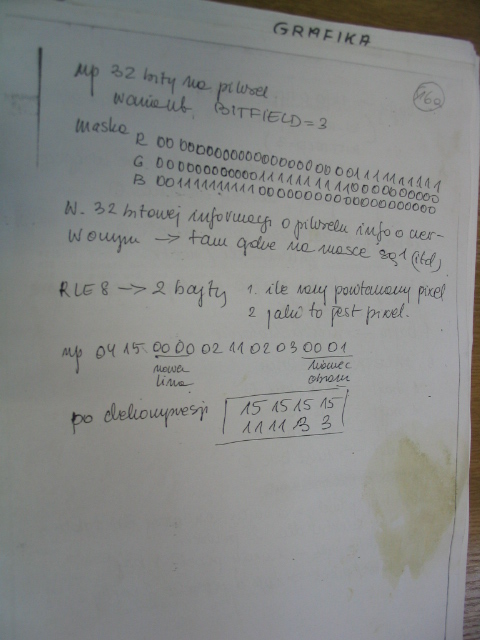 GRAFIKA
16a
np 32 bity na piksel
wariant BITFIELD=3
maska R 00 000000000000000000 001111111111
G 00000000000011111111110000000000
B 00111111111100000000000000000000
W. 32 bitowej informacji o pikselu info o czer-
wonym -> tam gdzie na masce są 1 (itd)
RLE8 -> 2 bajty 1. ile razy powtarzamy pixel
2 jaki to jest pixel.
np 04 15 0000 02 11 02 03 0001
nowa linia
koniec obrazu
po dekompresji 15 15 15 15
11 11 3 3